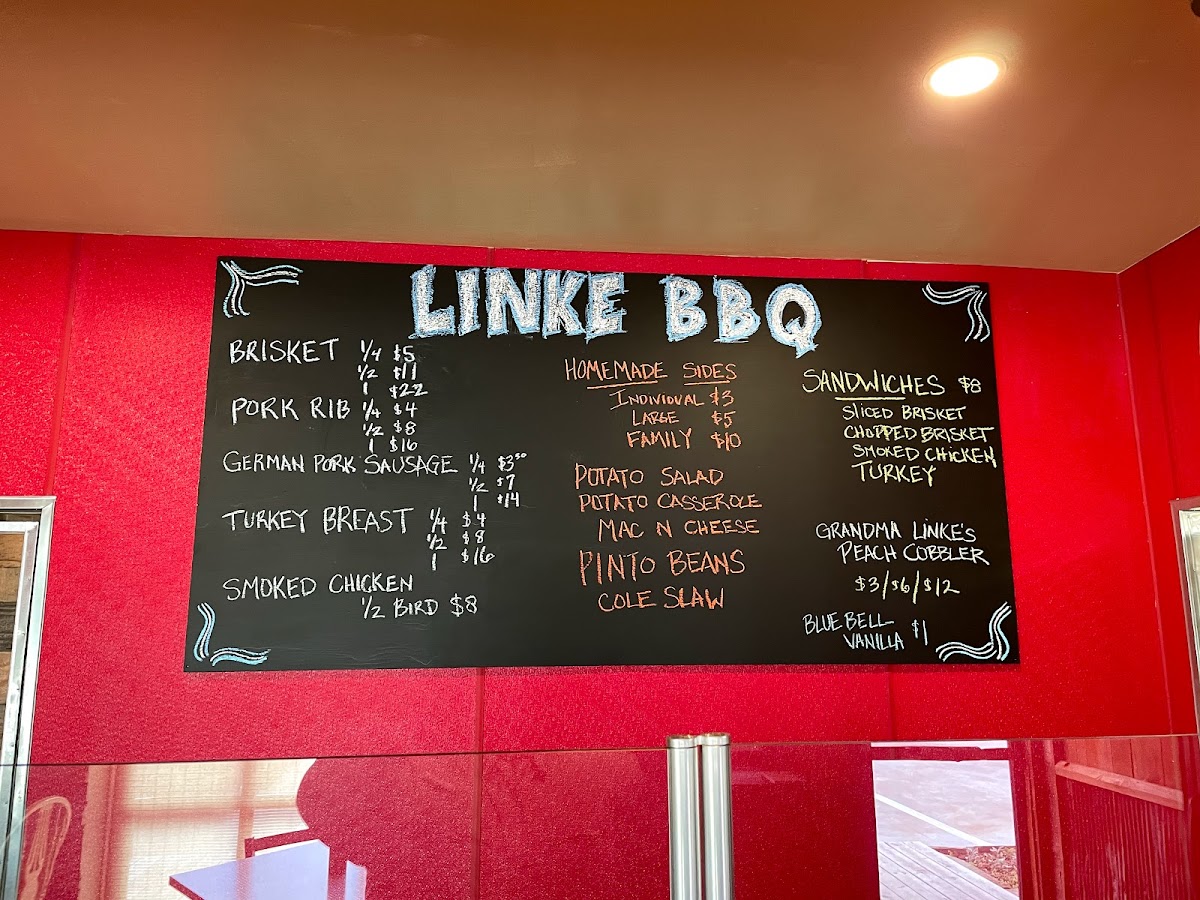 LINKE BBQ
BRISKET 1/4 $5
1/2 $11
1 $22
PORK RIB 1/4 $4
1/2 $8
1 $16
GERMAN PORK SAUSAGE 1/4 $3⁵⁰
1/2 $7
1 $14
TURKEY BREAST 1/4 $4
1/2 $8
1 $16
SMOKED CHICKEN
1/2 BIRD $8
HOMEMADE SIDES
INDIVIDUAL $3
LARGE $5
FAMILY $10
POTATO SALAD
POTATO CASSEROLE
MAC N CHEESE
PINTO BEANS
COLE SLAW
SANDWICHES $8
SLICED BRISKET
CHOPPED BRISKET
SMOKED CHICKEN
TURKEY
GRANDMA LINKE'S
PEACH COBBLER
$3/$6/$12
BLUE BELL
VANILLA $1